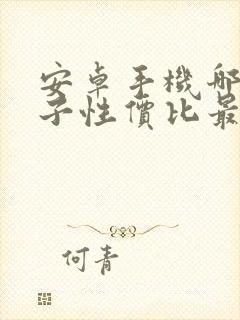 安卓手機哪
子性價比最
何青